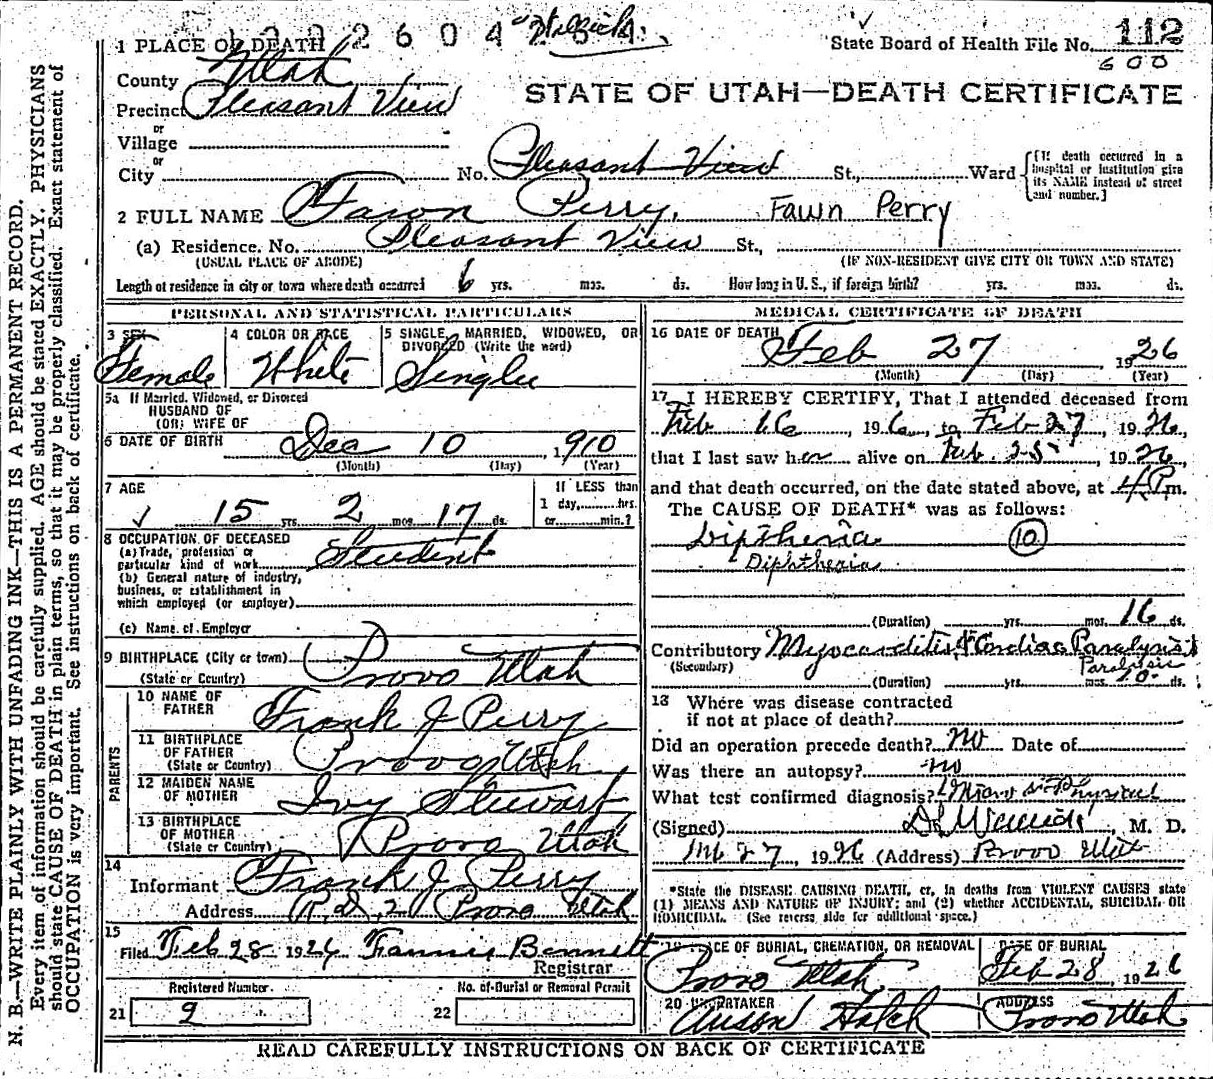 State Board of Health File No. 112
600
1 PLACE OF DEATH
County Utah
Precinct Pleasant View
STATE OF UTAH—DEATH CERTIFICATE
or
Village
or
City No. Pleasant View St., Ward {[If death occurred in a hospital or institution give its NAME instead of street and number.]
2 FULL NAME Fawn Perry, Fawn Perry
(a) Residence. No. Pleasant View St.,
(USUAL PLACE OF ABODE) (IF NON-RESIDENT GIVE CITY OR TOWN AND STATE)
Length of residence in city or town where death occurred 6 yrs. mos. ds. How long in U. S., if foreign birth? yrs. mos. ds.
PERSONAL AND STATISTICAL PARTICULARS
3 SEX
Female
4 COLOR OR RACE
White
5 SINGLE, MARRIED, WIDOWED, OR
DIVORCED (Write the word)
Single
5a If Married, Widowed, or Divorced
HUSBAND OF
(OR) WIFE OF
6 DATE OF BIRTH Dec 10, 1910
(Month) (Day) (Year)
7 AGE
15 yrs. 2 mos 17 ds.
If LESS than
1 day, hrs.
or min.?
8 OCCUPATION OF DECEASED
(a) Trade, profession or
particular kind of work Student
(b) General nature of industry,
business, or establishment in
which employed (or employer)
(c) Name of Employer
9 BIRTHPLACE (City or town) Provo Utah
(State or Country)
PARENTS
10 NAME OF
FATHER Frank J Perry
11 BIRTHPLACE
OF FATHER
(State or Country) Provo Utah
12 MAIDEN NAME
OF MOTHER Ivy Stewart
13 BIRTHPLACE
OF MOTHER
(State or Country) Provo Utah
14
Informant Frank J Perry
Address R.D. 2 Provo Utah
15
Filed Feb 28 1926 Fannie Bennett
Registrar
Registered Number
21 9
No. of Burial or Removal Permit
22
MEDICAL CERTIFICATE OF DEATH
16 DATE OF DEATH
Feb 27 1926
(Month) (Day) (Year)
17 I HEREBY CERTIFY, That I attended deceased from
Feb 16, 1926, to Feb 27, 1926,
that I last saw her alive on Feb. 25, 1926
and that death occurred, on the date stated above, at 4 P.m.
The CAUSE OF DEATH* was as follows:
Diptheria 10
Diphtheria
(Duration) yrs. mos. 16 ds.
Contributory Myocarditis & Cardiac Paralysis
(Secondary) Paralysis
(Duration) yrs. mos. 10 ds.
18 Where was disease contracted
if not at place of death?
Did an operation precede death? no Date of
Was there an autopsy? no
What test confirmed diagnosis? Physical
(Signed) , M. D.
27, 1926 (Address) Provo Utah
*State the DISEASE CAUSING DEATH, or, in deaths from VIOLENT CAUSES state
(1) MEANS AND NATURE OF INJURY; and (2) whether ACCIDENTAL, SUICIDAL OR
HOMICIDAL. (See reverse side for additional space.)
19 PLACE OF BURIAL, CREMATION, OR REMOVAL
Provo Utah
DATE OF BURIAL
Feb 28, 1926
20 UNDERTAKER
Anson Hatch
ADDRESS
Provo Utah
READ CAREFULLY INSTRUCTIONS ON BACK OF CERTIFICATE
N. B.—WRITE PLAINLY WITH UNFADING INK—THIS IS A PERMANENT RECORD.
Every item of information should be carefully supplied. AGE should be stated EXACTLY. PHYSICIANS
should state CAUSE OF DEATH in plain terms, so that it may be properly classified. Exact statement of
OCCUPATION is very important. See instructions on back of certificate.